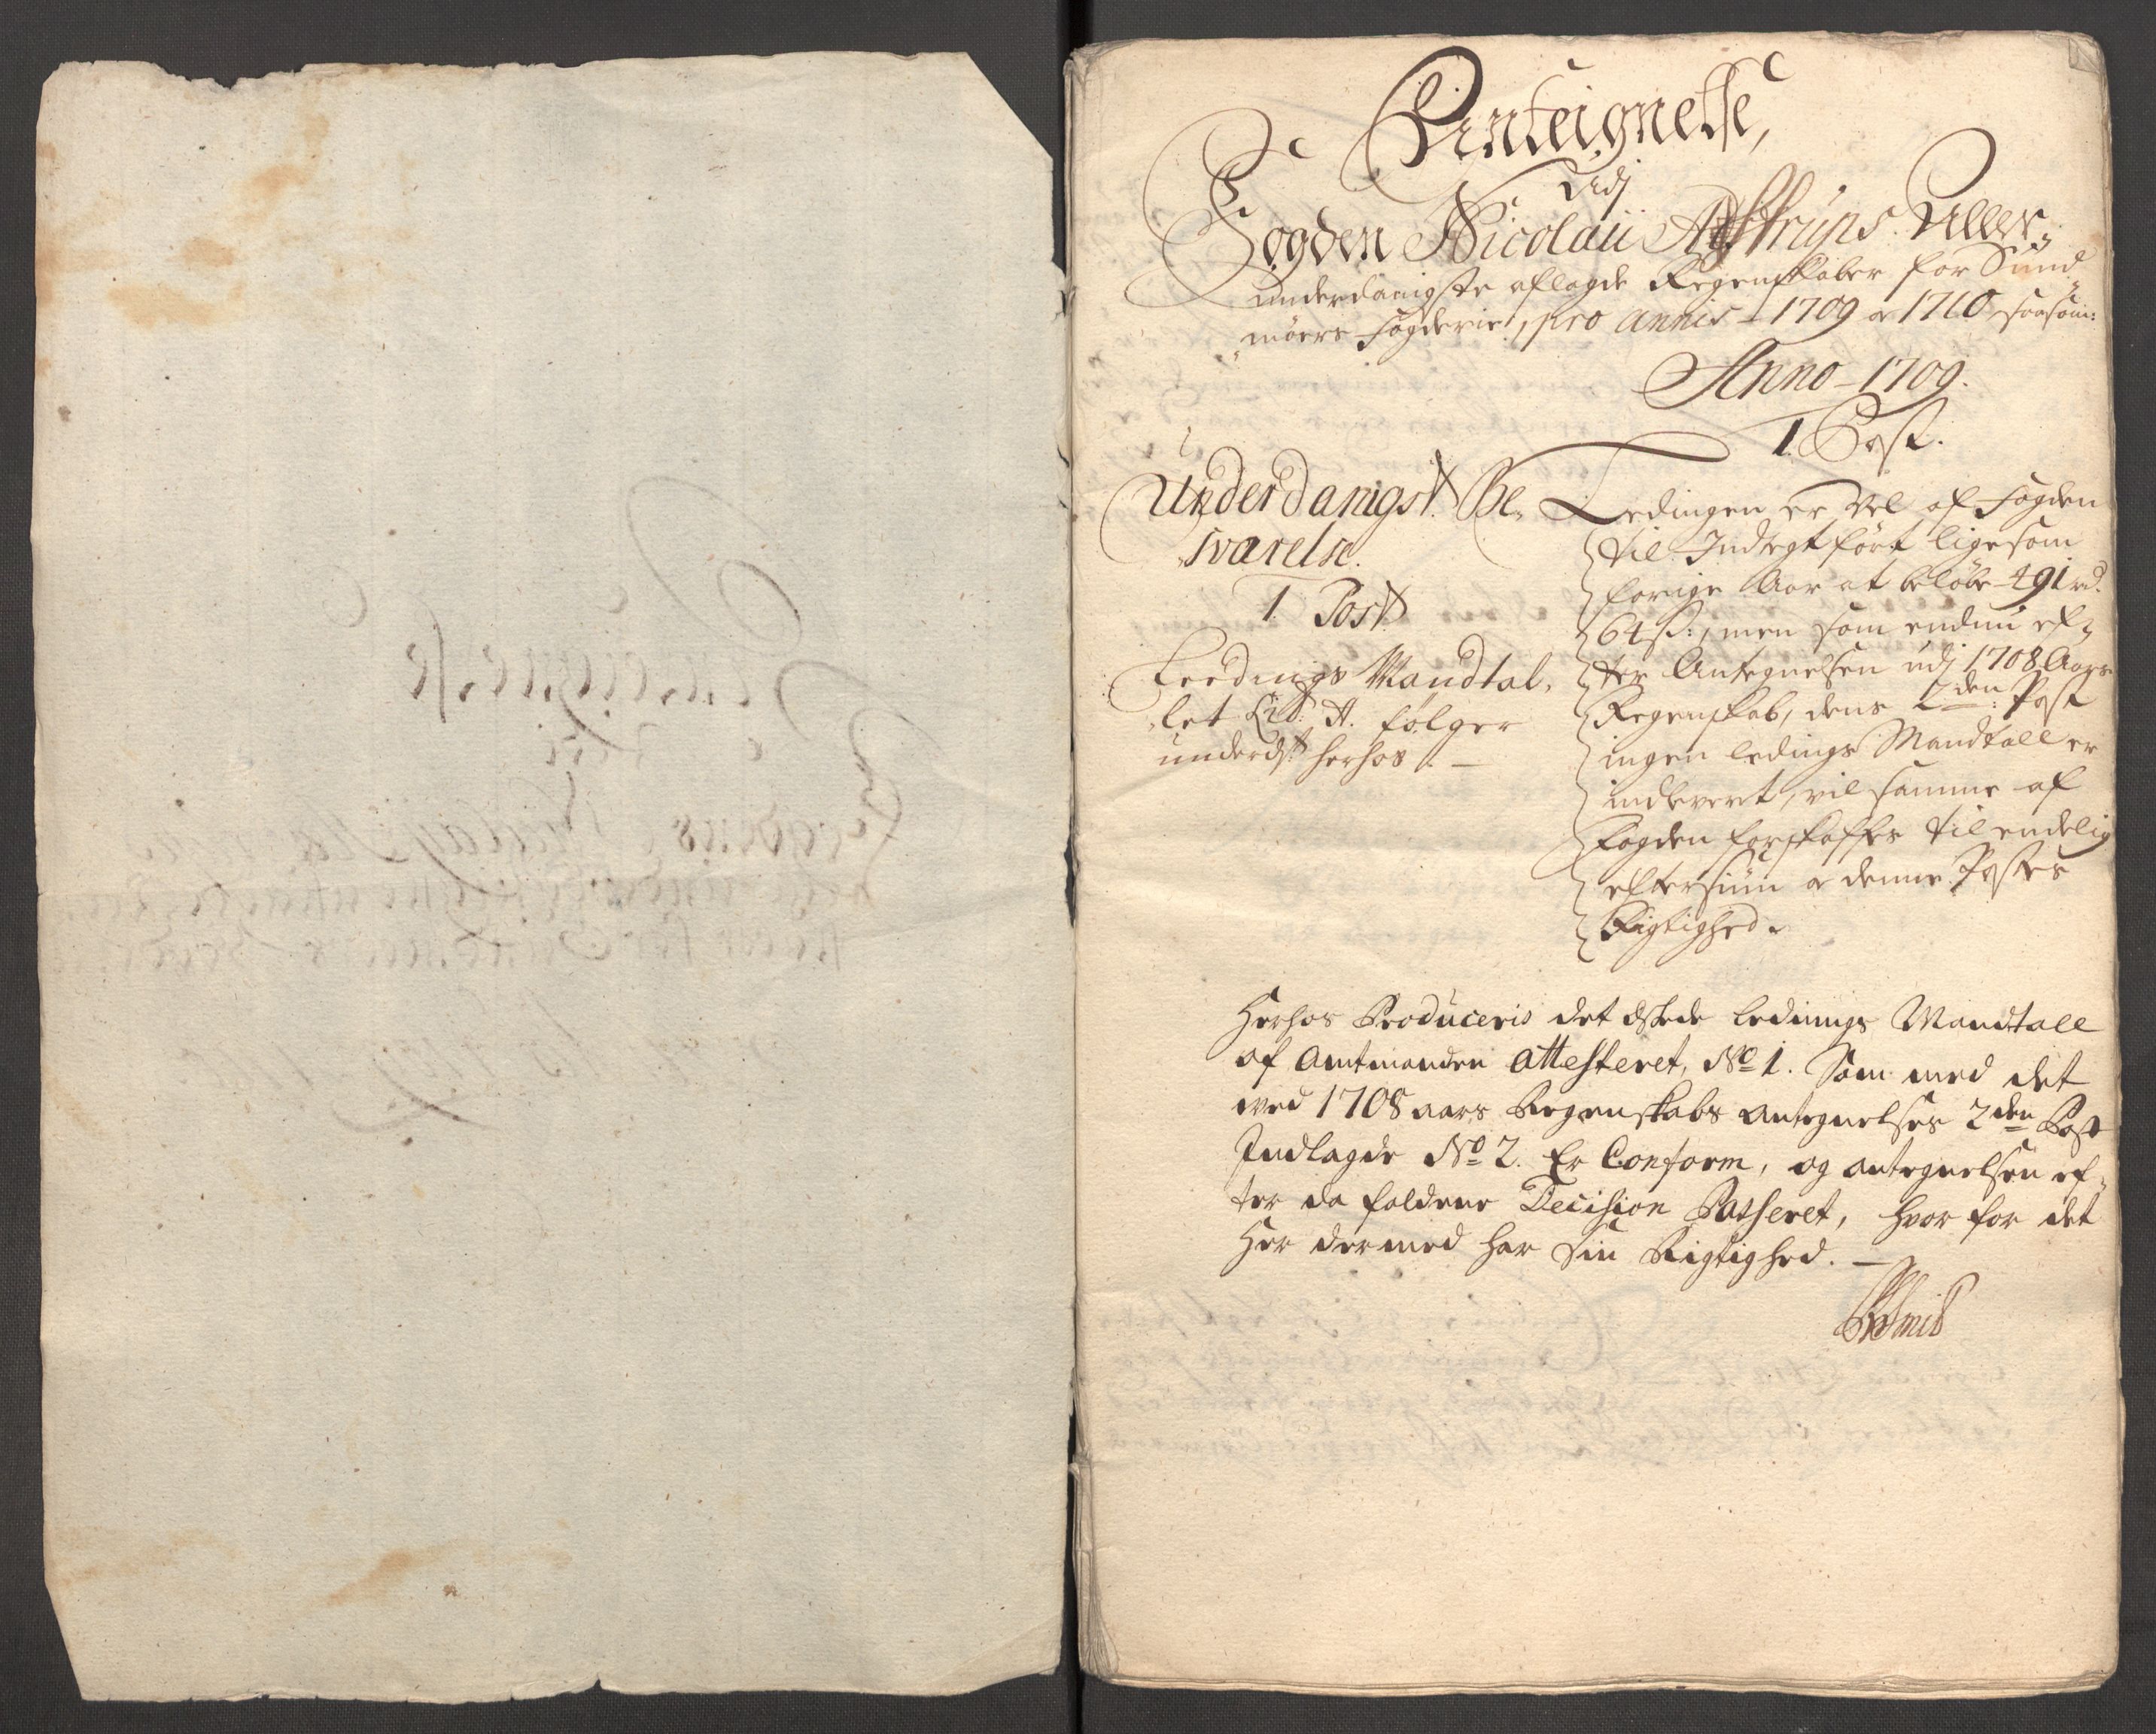 Anteignelse,
Udj
Fogden Nicolaii Astrups Aller,
underdanigste aflagde Regenskaber for Sund,
möers Fogderie, pro Annis 1709 & 1710, saasom:
Anno 1709.
1. Post.
Underdanigst. Be,
svarelse.
1. Post
Leedings Mandtal,
let Lit: A. følger
underdst herhos. –
Ledingen er vel af Fogden
til Indtegt fört ligesom
forige Aar at beløbe 491 rd.
64 s:, men som endnu ef,
ter Antegnelsen udj 1708 Aars
Regenskab, dens 2den: Post
ingen ledings Mandtall er
indlevert, vil samme af
Fogden forskaffes til endelig
eftersiun & denne Postes
Rigtighed.
Herhos Produceris det Edskede Ledings Mandtall
af Amtmanden Attesteret, No 1. Som med det
ved 1708 aars Regenskabs Antegnelses 2den Post
Indlagde No 2. Er Conform, og antegnelsen ef,
ter da faldene Decision Passeret, hvor for det
Her dermed har sin Rigtighed. –